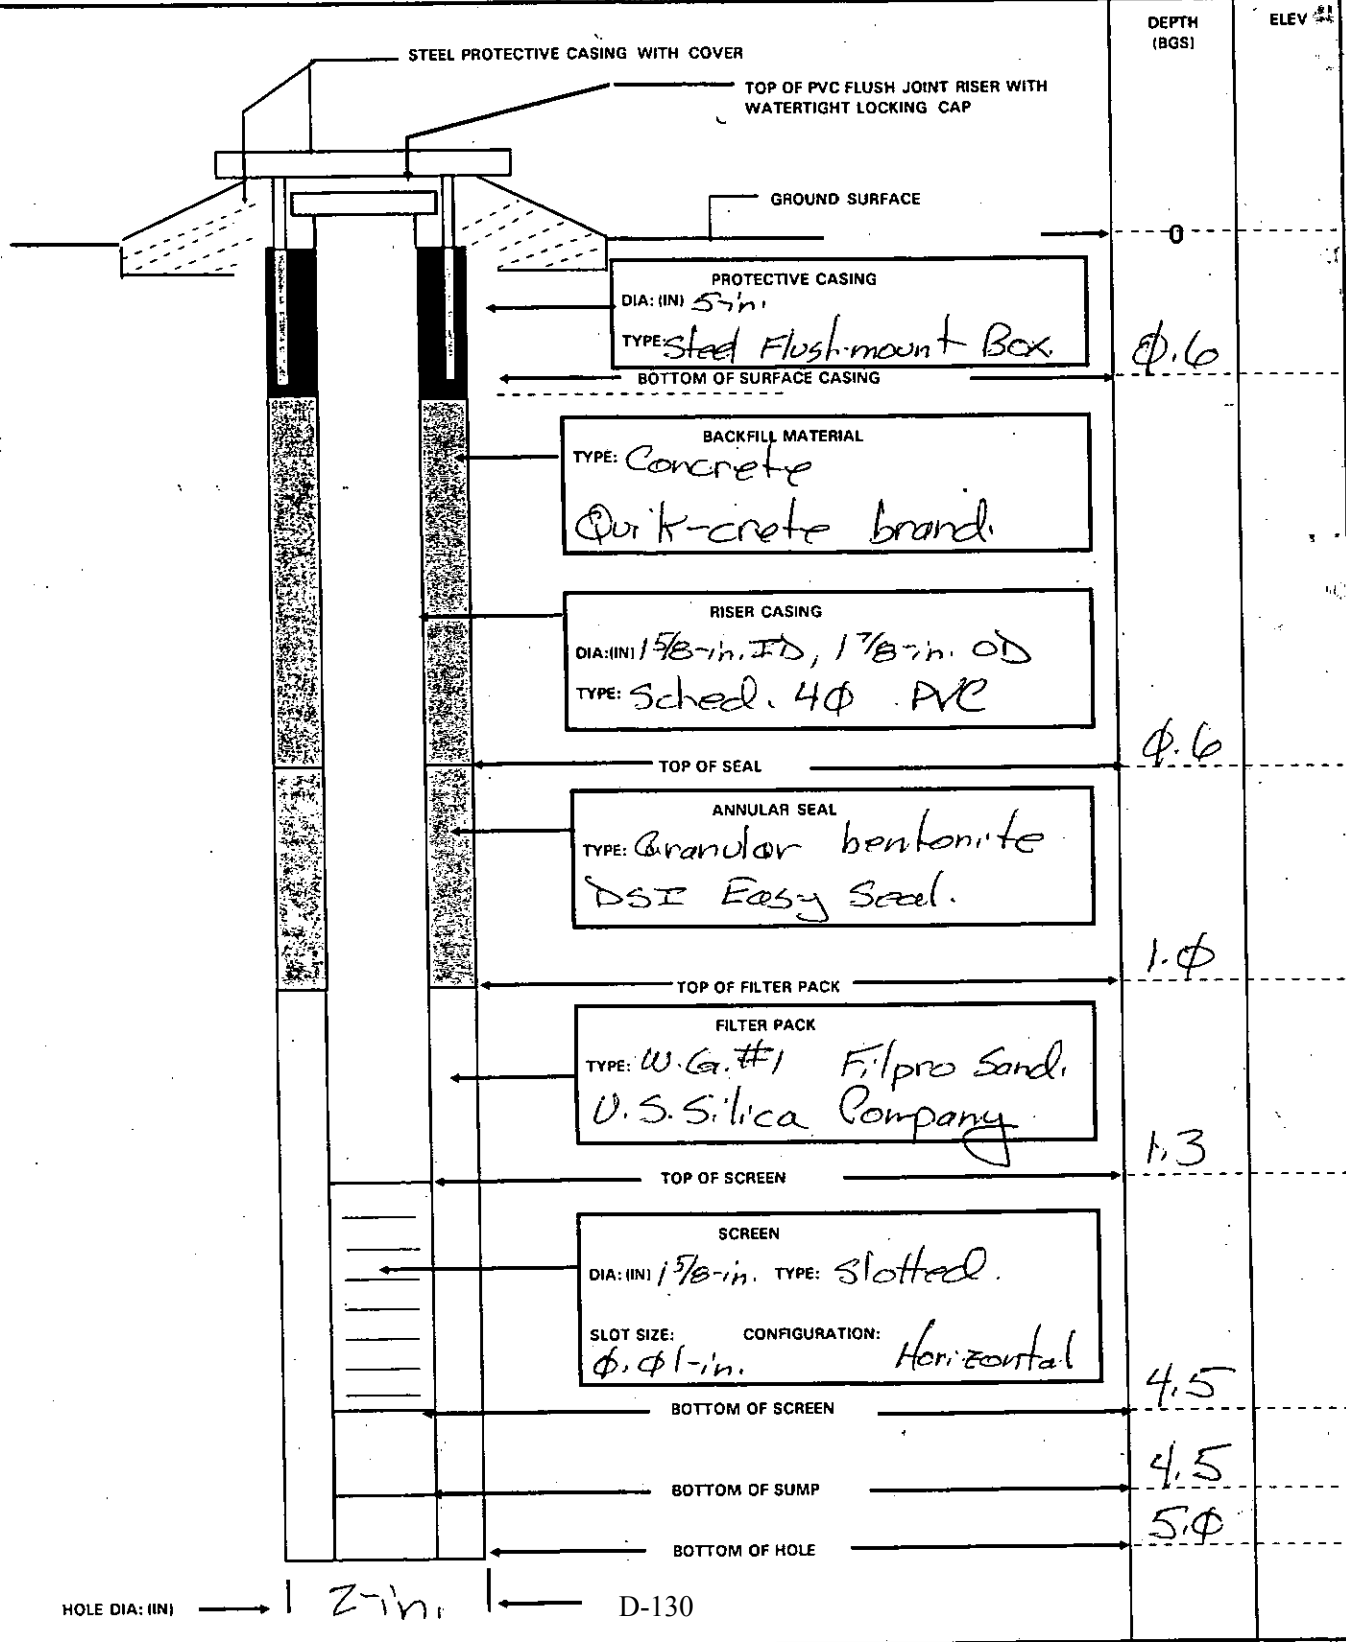 DEPTH
(BGS)
ELEV
STEEL PROTECTIVE CASING WITH COVER
TOP OF PVC FLUSH JOINT RISER WITH
WATERTIGHT LOCKING CAP
GROUND SURFACE
0
PROTECTIVE CASING
DIA: (IN) 5-in.
TYPE: Steel Flush-mount Box.
0.6
BOTTOM OF SURFACE CASING
BACKFILL MATERIAL
TYPE: Concrete
Quik-crete brand.
RISER CASING
DIA: (IN) 1 5/8-in. ID, 1 7/8-in. OD
TYPE: Sched. 40 PVC
0.6
TOP OF SEAL
ANNULAR SEAL
TYPE: Granular bentonite
DSI Easy Seal.
1.0
TOP OF FILTER PACK
FILTER PACK
TYPE: W.G. #1 Filpro Sand.
U.S. Silica Company
1.3
TOP OF SCREEN
SCREEN
DIA: (IN) 1 5/8-in. TYPE: Slotted.
SLOT SIZE: CONFIGURATION:
0.01-in. Horizontal
4.5
BOTTOM OF SCREEN
4.5
BOTTOM OF SUMP
5.0
BOTTOM OF HOLE
HOLE DIA: (IN) 2-in.
D-130